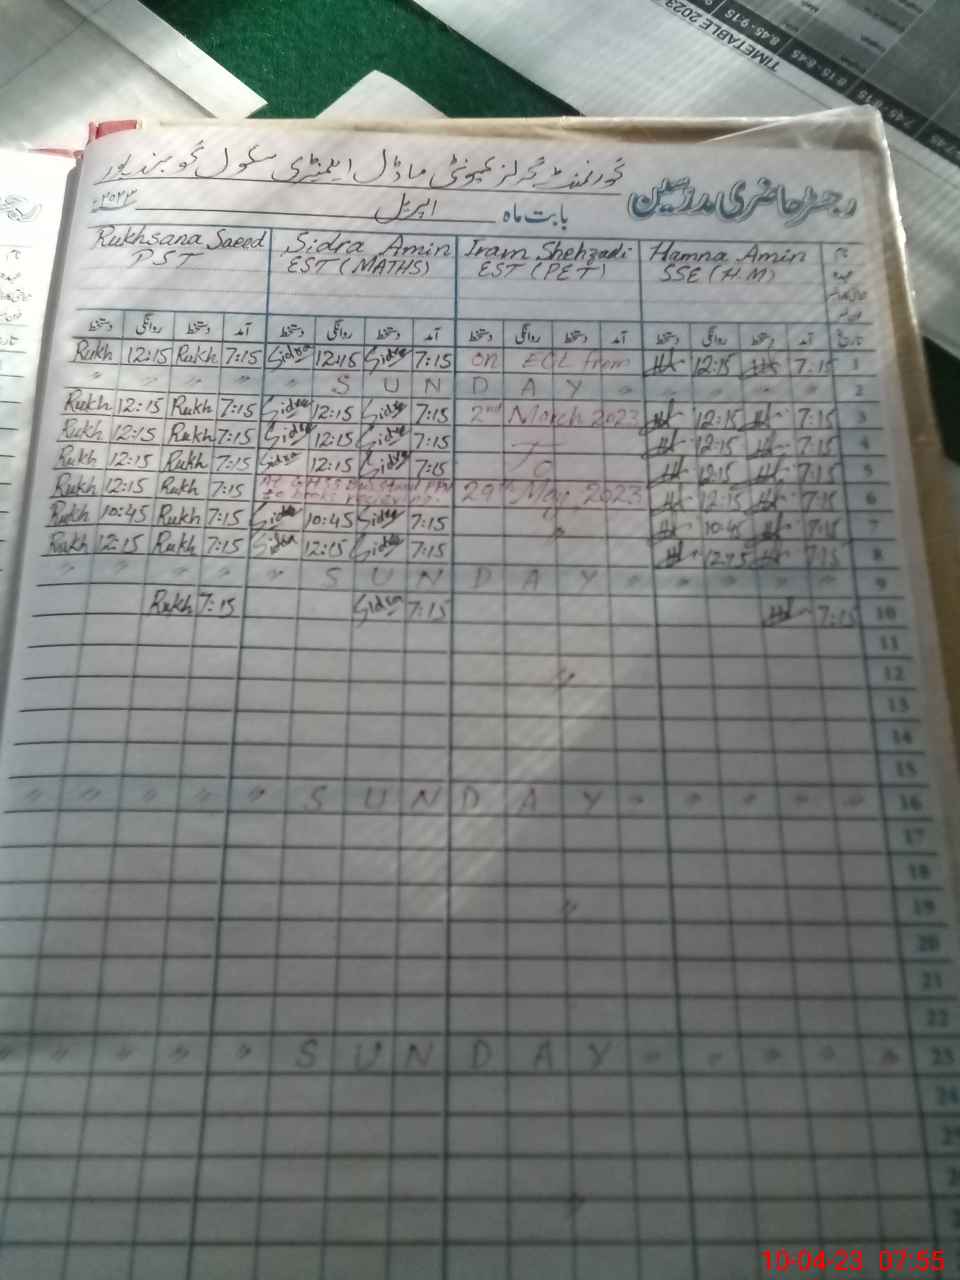 TIMETABLE 2023
8:45-9:15
8:15-8:45
7:45-8:15
گورنمنٹ گرلز کمیونٹی ماڈل ایلیمنٹری سکول گوبند پور
رجسٹر حاضری مدرسین
بابت ماہ اپریل ۲۰۲۳ء
Rukhsana Saeed Sidra Amin Iram Shehzadi Hamna Amin نام
PST EST (MATHS) EST (PET) SSE (H.M) عہدہ
دستخط روانگی دستخط آمد دستخط روانگی دستخط آمد دستخط روانگی دستخط آمد دستخط روانگی دستخط آمد تاریخ
Rukh 12:15 Rukh 7:15 Sidra 12:15 Sidra 7:15 on EOL from 12:15 7:15 1
" " " " " S U N D A Y " " " " 2
Rukh 12:15 Rukh 7:15 Sidra 12:15 Sidra 7:15 2nd March 2023 12:15 7:15 3
Rukh 12:15 Rukh 7:15 Sidra 12:15 Sidra 7:15 To 12:15 7:15 4
Rukh 12:15 Rukh 7:15 Sidra 12:15 Sidra 7:15 12:15 7:15 5
Rukh 12:15 Rukh 7:15 29th May, 2023 12:15 7:15 6
to books receiving.
Rukh 10:45 Rukh 7:15 Sidra 10:45 Sidra 7:15 " 10:45 7:15 7
Rukh 12:15 Rukh 7:15 Sidra 12:15 Sidra 7:15 12:15 7:15 8
" " " " " S U N D A Y " " " " 9
Rukh 7:15 Sidra 7:15 7:15 10
11
" 12
13
14
15
" " " " " S U N D A Y " " " " " 16
17
18
" 19
20
21
22
" " " " " S U N D A Y " " " " " 23
24
10-04-23 07:55